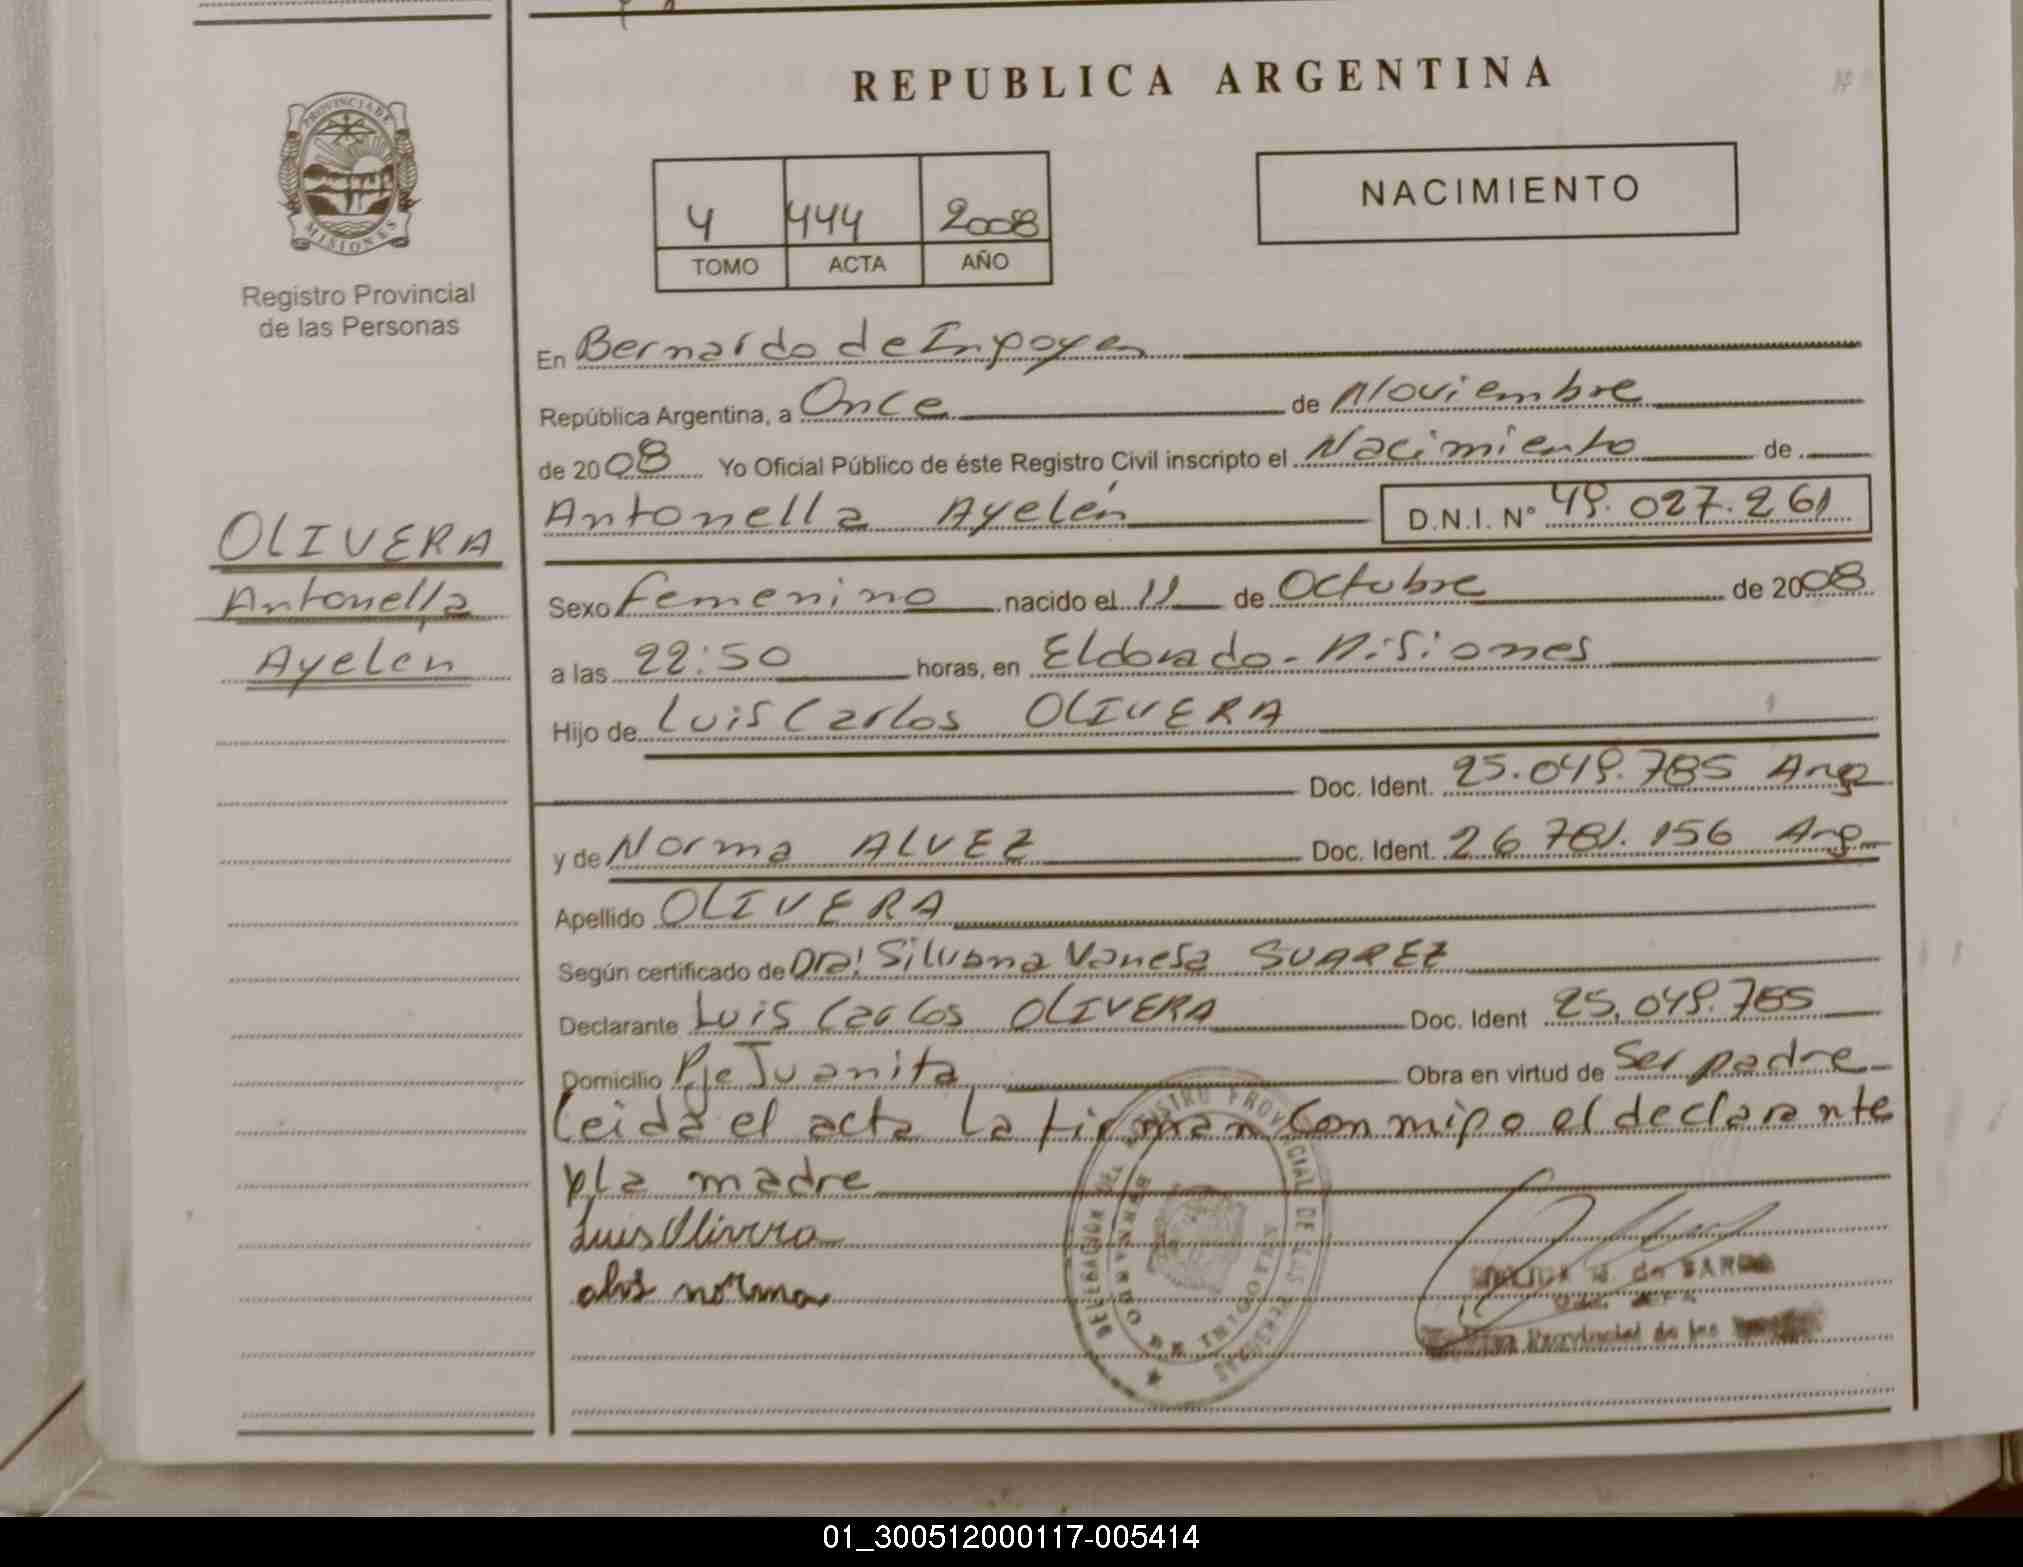 REPUBLICA ARGENTINA
PROVINCIA DE
MISIONES
Registro Provincial
de las Personas
4 444 2008
TOMO ACTA AÑO
NACIMIENTO
En Bernardo de Irigoyen
República Argentina, a Once de Noviembre
de 2008 Yo Oficial Público de éste Registro Civil inscripto el Nacimiento de
Antonella Ayelén D.N.I. N° 49.027.261
OLIVERA
Antonella
Ayelen
Sexo Femenino nacido el 11 de Octubre de 2008
a las 22:50 horas, en Eldorado - Misiones
Hijo de Luis Carlos OLIVERA
Doc. Ident. 25.049.785 Arg
y de Norma ALVEZ Doc. Ident. 26.781.156 Arg
Apellido OLIVERA
Según certificado de Dra! Silvana Vanesa SUAREZ
Declarante Luis Carlos OLIVERA Doc. Ident 25.049.785
Domicilio Pje Juanita Obra en virtud de Ser padre
Leida el acta la firman conmigo el declarante
y la madre
Luis Olivera
norma
DELEGACION DEL REGISTRO PROVINCIAL DE LAS PERSONAS
BERNARDO DE IRIGOYEN
Provincial de las
01_300512000117-005414